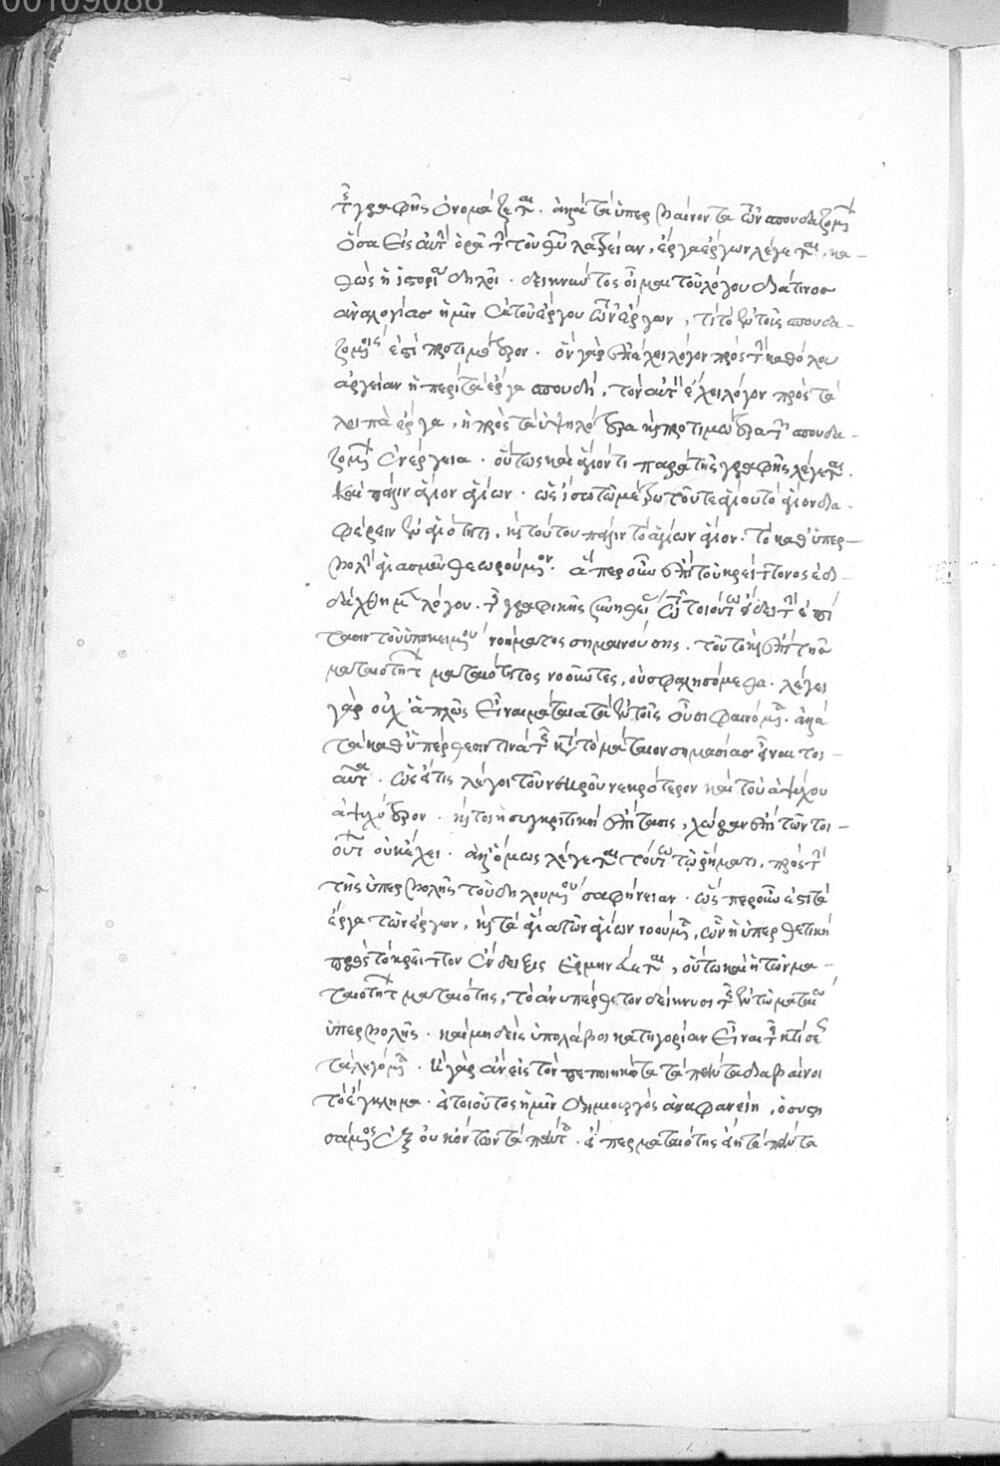 τῆς γραφῆς ὀνομάζεται. ἀλλὰ τὰ ὑπερβαίνοντα τῶν σπουδαζομένων
ὅσα εἰς αὐτὴν ὁρᾶ τὴν τοῦ θεοῦ λατρείαν, ἔργα ἔργων λέγεται, κα-
θὼς ἡ ἱστορία δηλοῖ. δεικνύντος οἶμαι τοῦ λόγου διά τινοσ
ἀναλογίασ ἡμῖν ἐκ τοῦ ἔργου τῶν ἔργων, τί τὸ ἐν τοῖς σπουδα-
ζομένοις ἐστὶ προτιμότερον. ὃν γὰρ ἐπέχει λόγον πρὸς τὴν καθόλου
ἀργείαν ἡ περὶ τὰ ἔργα σπουδή, τὸν αὐτὸν ἔχει λόγον πρὸς τὰ
λοιπὰ ἔργα, ἡ πρὸς τὰ ὑψηλότερα καὶ προτιμώτερα τῶν σπουδα-
ζομένων ἐνέργεια. οὕτως καὶ ἅγιόν τι παρὰ τῆς γραφῆς λέγεται.
καὶ πάλιν ἅγιον ἁγίων. ὡς ἴσω τῶ μέτρω τοῦ τε ἁγίου τὸ ἅγιον δια-
φέρειν ἐν ἁγιότητι, καὶ τούτου πάλιν τὸ ἁγίων ἅγιον. τὸ καθ' ὑπερ-
βολὴν ἁγιασμοῦ θεωρούμενον. ἅπερ οὖν ἐπὶ τοῦ κρείττονος ἐδι-
δάχθημεν λόγου. τῆς γραφικῆς συνηθείας ἐν τῶ τοιούτω εἴδει τὴν ἐπί
τασιν τοῦ ὑποκειμένου νοήματος σημαινούσης. τοῦτο καὶ ἐπὶ τῆς
ματαιοτήτων ματαιότητος νοοῦντες, οὐ σφαλησόμεθα. λέγει
γὰρ οὐχ ἁπλῶς εἶναι μάταια τὰ ἐν τοῖς οὖσι φαινόμενα. ἀλλὰ
τὰ καθ' ὑπέρθεσιν τινὰ τῆς κατὰ τὸ μάταιον σημασίασ εἶναι τοι-
αῦτα. ὡς εἴ τις λέγοι τοῦ νεκροῦ νεκρότερον καὶ τοῦ ἀψύχου
ἀψυχότερον. καί τοι ἡ συγκριτικὴ ἐπίτασις, χώραν ἐπὶ τῶν τοι-
ούτων οὐκ ἔχει. ἀλλ' ὅμως λέγεται τούτω τῶ ῥήματι, πρὸς τὴν
τῆς ὑπερβολῆς τοῦ δηλουμένου σαφήνειαν. ὥσπερ οὖν ἐστὶ τὰ
ἔργα τῶν ἔργων, καὶ τὰ ἅγια τῶν ἁγίων νοούμενα, ὧν ἡ ὑπερθετικὴ
πρὸς τὸ κρεῖττον ἔνδειξις ἑρμηνεύεται, οὕτω καὶ ἡ τῶν μα-
ταιοτήτων ματαιότης, τὸ ἀνυπέρθετον δείκνυσι τῆς ἐν τῶ ματαίω
ὑπερβολῆς. καὶ μηδεὶς ὑπολάβοι κατηγορίαν εἶναι τῆς κτίσεως
τὰ λεγόμενα. ἦ γὰρ ἂν εἰς τὸν πεποιηκότα τὰ πάντα διαβαίνοι
τὸ ἔγκλημα. εἰ τοιοῦτος ἡμῖν δημιουργὸς ἀναφανείη, ὁ συστη
σάμενος ἐξ οὐκ ὄντων τὰ πάντα. εἴπερ ματαιότης εἴη τὰ πάντα